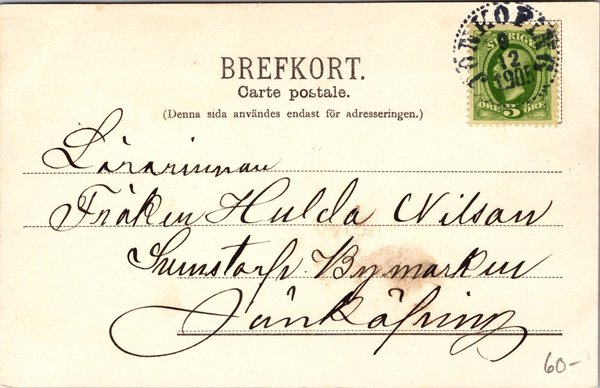 BREFKORT.
Carte postale.
(Denna sida användes endast för adresseringen.)
JÖNKÖPING
8
12
1905
SVERIGE
ÖRE 5 ÖRE
Lärarinnan
Fröken Hulda Nilson
Bymarken
Jönköping
60-